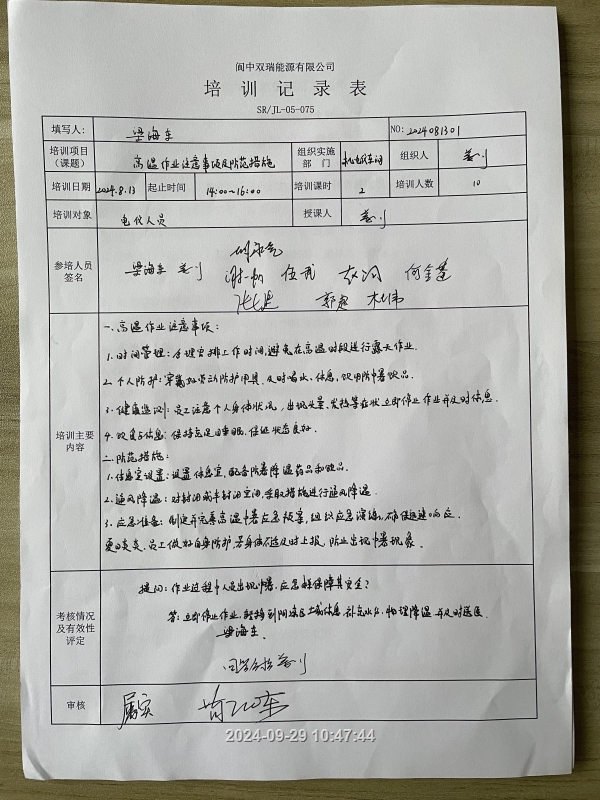 阆中双瑞能源有限公司
培训记录表
SR/JL-05-075
填写人： 梁海东 NO: 2024081301
培训项目（课题） 高温作业注意事项及防范措施 组织实施部门 机电仪车间 组织人
培训日期 2024.8.13 起止时间 14:00~16:00 培训课时 2 培训人数 10
培训对象 电仪人员 授课人
参培人员签名 梁海东
伍武 何金莲
郭君
培训主要内容
一、高温作业注意事项：
1. 时间管理：合理安排工作时间，避免在高温时段进行露天作业.
2. 个人防护：穿戴好劳动防护用具，及时喝水、休息，饮用防中暑饮品.
3. 健康监测：员工注意个人身体状况，出现头晕、发热等症状立即停止作业并及时休息.
4. 饮食与休息：保持充足的睡眠，保证状态良好.
二、防范措施：
1. 休息室设置：设置休息室，配备防暑降温药品和饮品.
2. 通风降温：对封闭或半封闭空间，采取措施进行通风降温.
3. 应急准备：制定并完善高温中暑应急预案，组织应急演练，确保迅速响应.
夏日炎炎、员工做好自身防护，若身体不适及时上报，防止出现中暑现象.
考核情况及有效性评定
提问：作业过程中人员出现中暑，应怎样保障其安全？
答：立即停止作业，转移到阴凉区域休息，补充水分，物理降温并及时送医.
梁海东.
审核 属实
2024-09-29 10:47:44